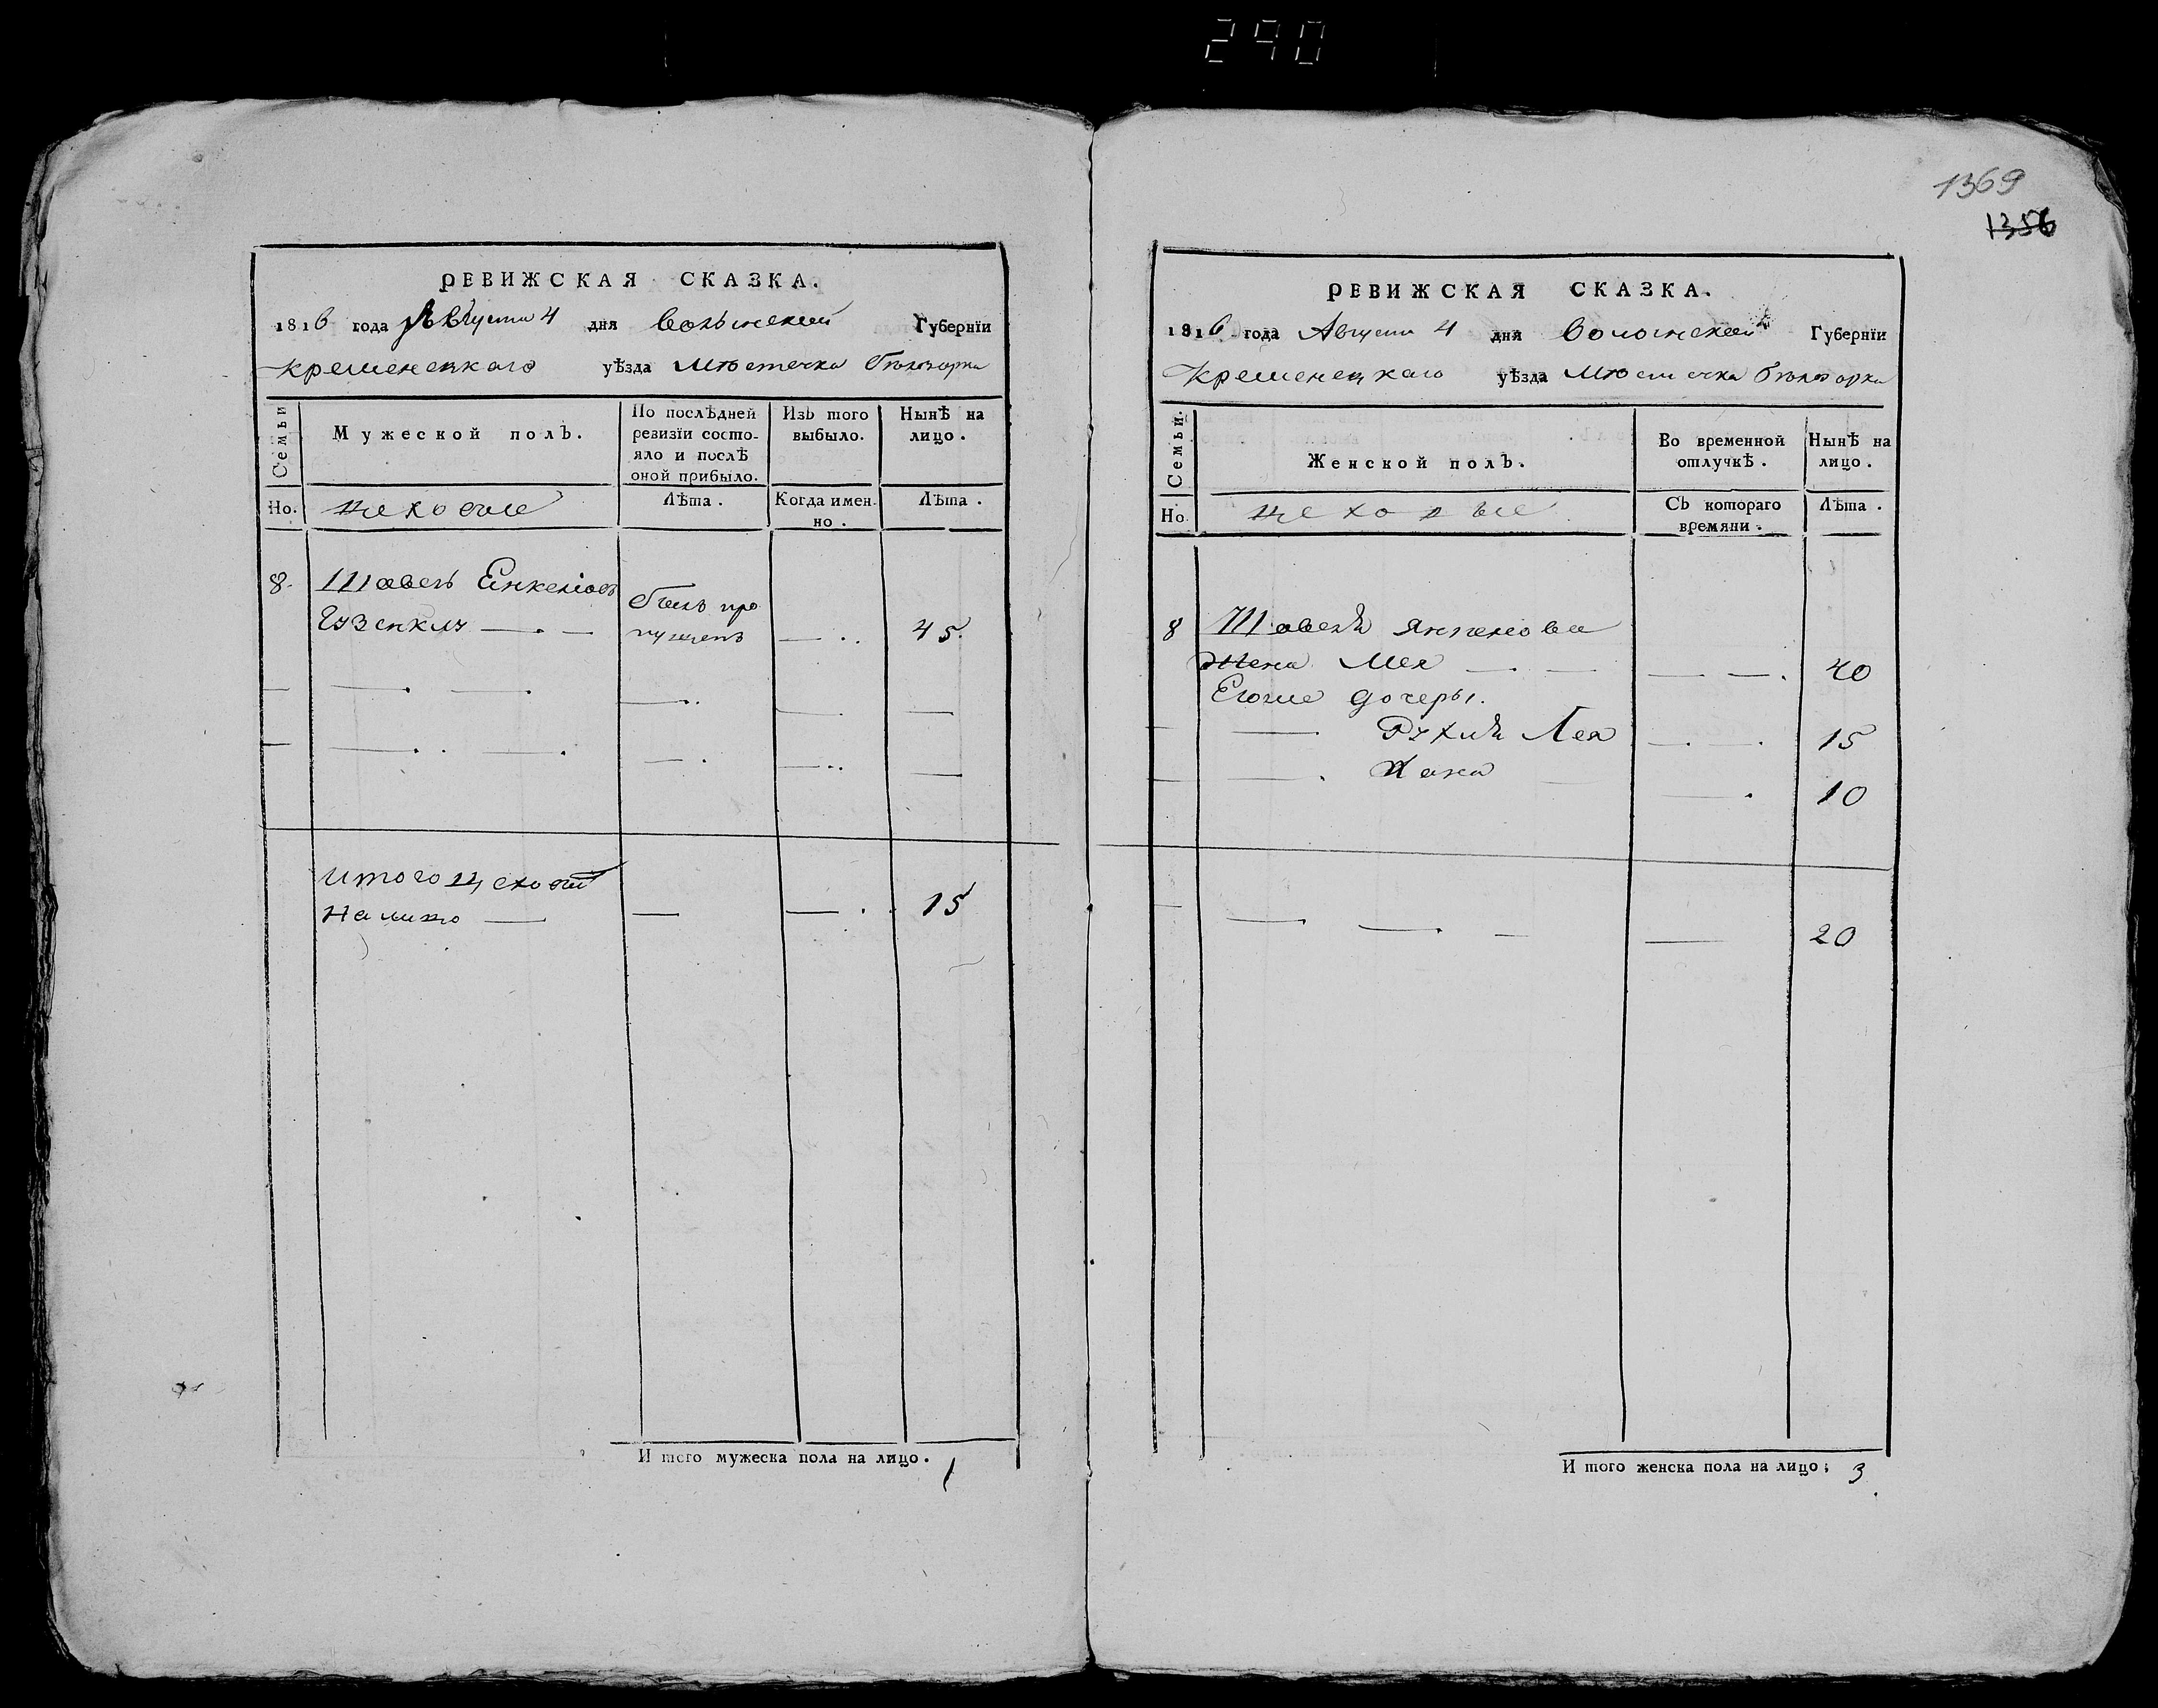 290
1369
1356
РЕВИЖСКАЯ СКАЗКА.
1816 года Августа 4 дня Волынской Губернїи
Кременецкаго уѣзда Мѣстечка Бѣлозорки
Семьи
Мужеской полъ.
По послѣдней ревизїи состо-
яло и послѣ оной прибыло.
Изъ того выбыло.
Нынѣ на лицо.
Но. цеховые Лѣта. Когда имен-
но. Лѣта.
8. Шавель
былъ про
пущенъ 45.
Итого цеховыхъ
На лицо 15
И того мужеска пола на лицо. 1
РЕВИЖСКАЯ СКАЗКА.
1816 года Августа 4 дня Волынской Губернїи
Кременецкаго уѣзда Мѣстечка Бѣлозорки
Семьи.
Женской полъ.
Во временной отлучкѣ.
Нынѣ на лицо.
Но цеховые Съ котораго
времяни. Лѣта.
8 Шавеля
Жена Мея 40
Егоже дочеры.
Рухля Лея 15
Хана 10
20
И того женска пола на лицо; 3